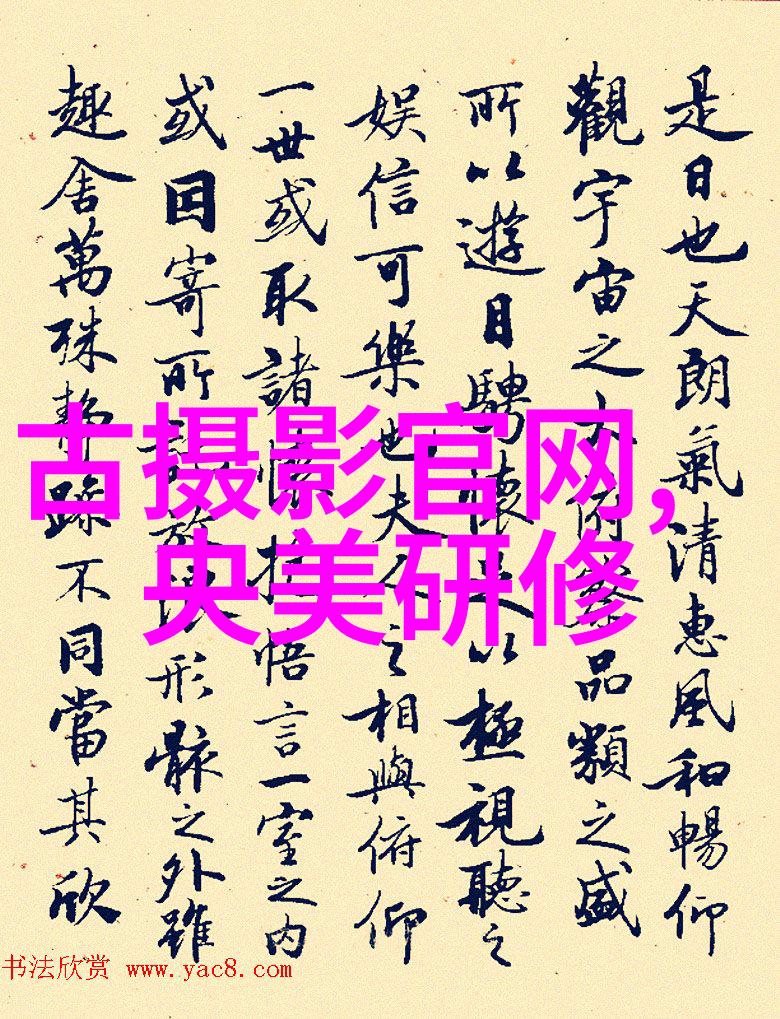 是日也天朗氣清惠風和暢仰
觀宇宙之大俯察品類之盛
所以遊目騁懷足以極視聽之
娱信可樂也夫人之相與俯仰
一世或取諸懷抱悟言一室之内
或因寄所託放浪形骸之外雖
趣舍萬殊静躁不同當其欣
古摄影官网,
央美研修
书法欣赏 www.yac8.com